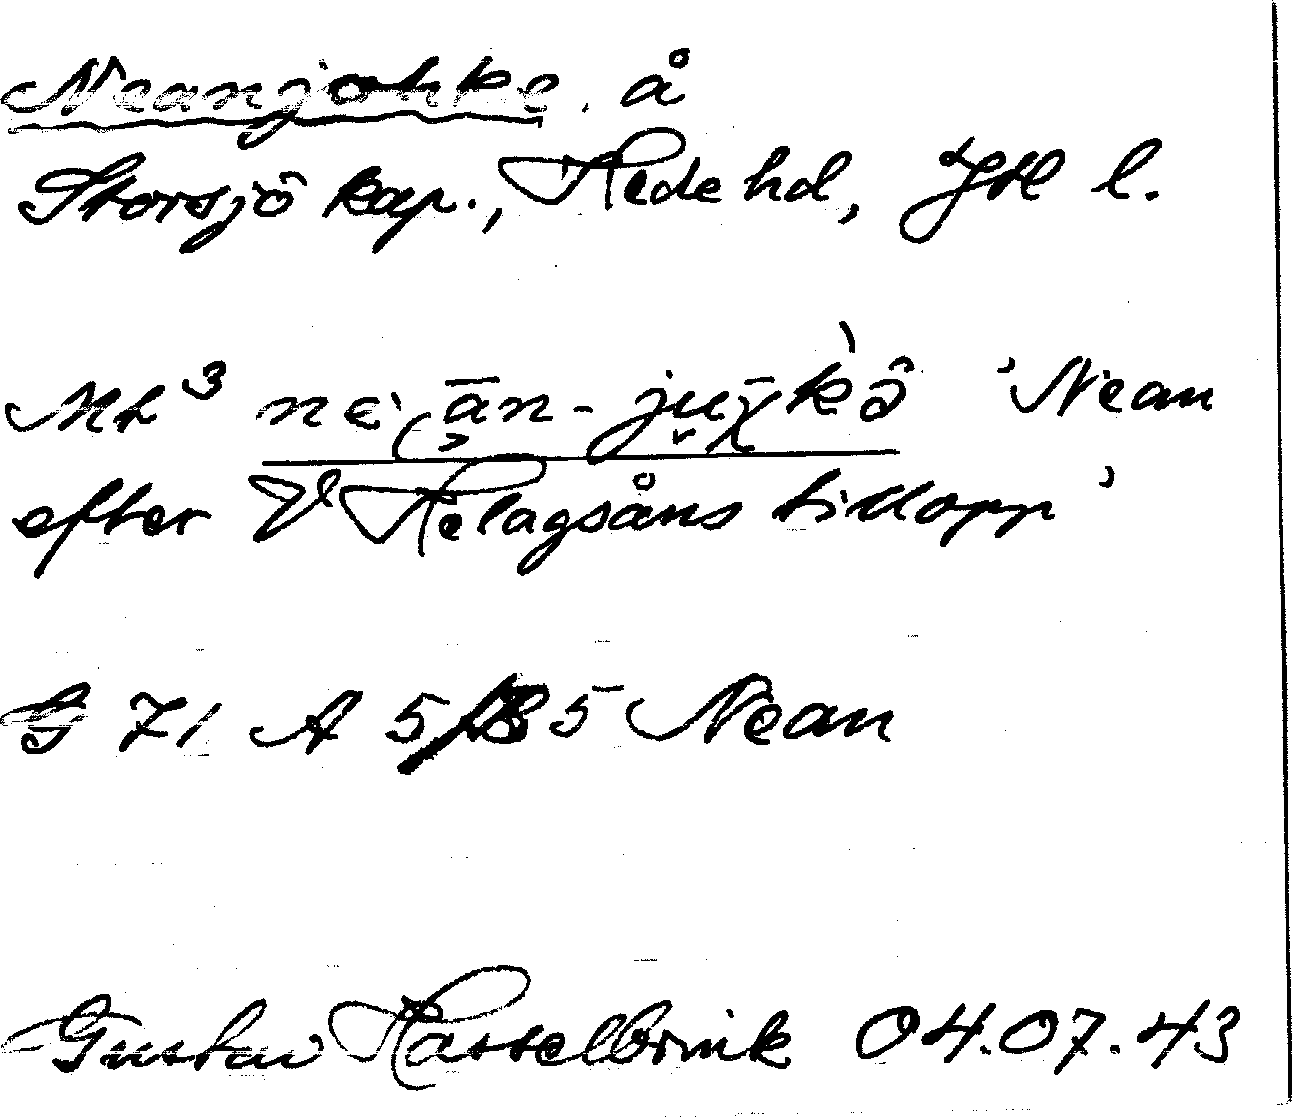 Neanjohke, å
Storsjö kap., Hede hd, Jtl l.
Mh³ 'Nean
efter V Helagsåns tillopp'
G 71 A 5 Nean
Gustav Hasselbrink 04.07.43